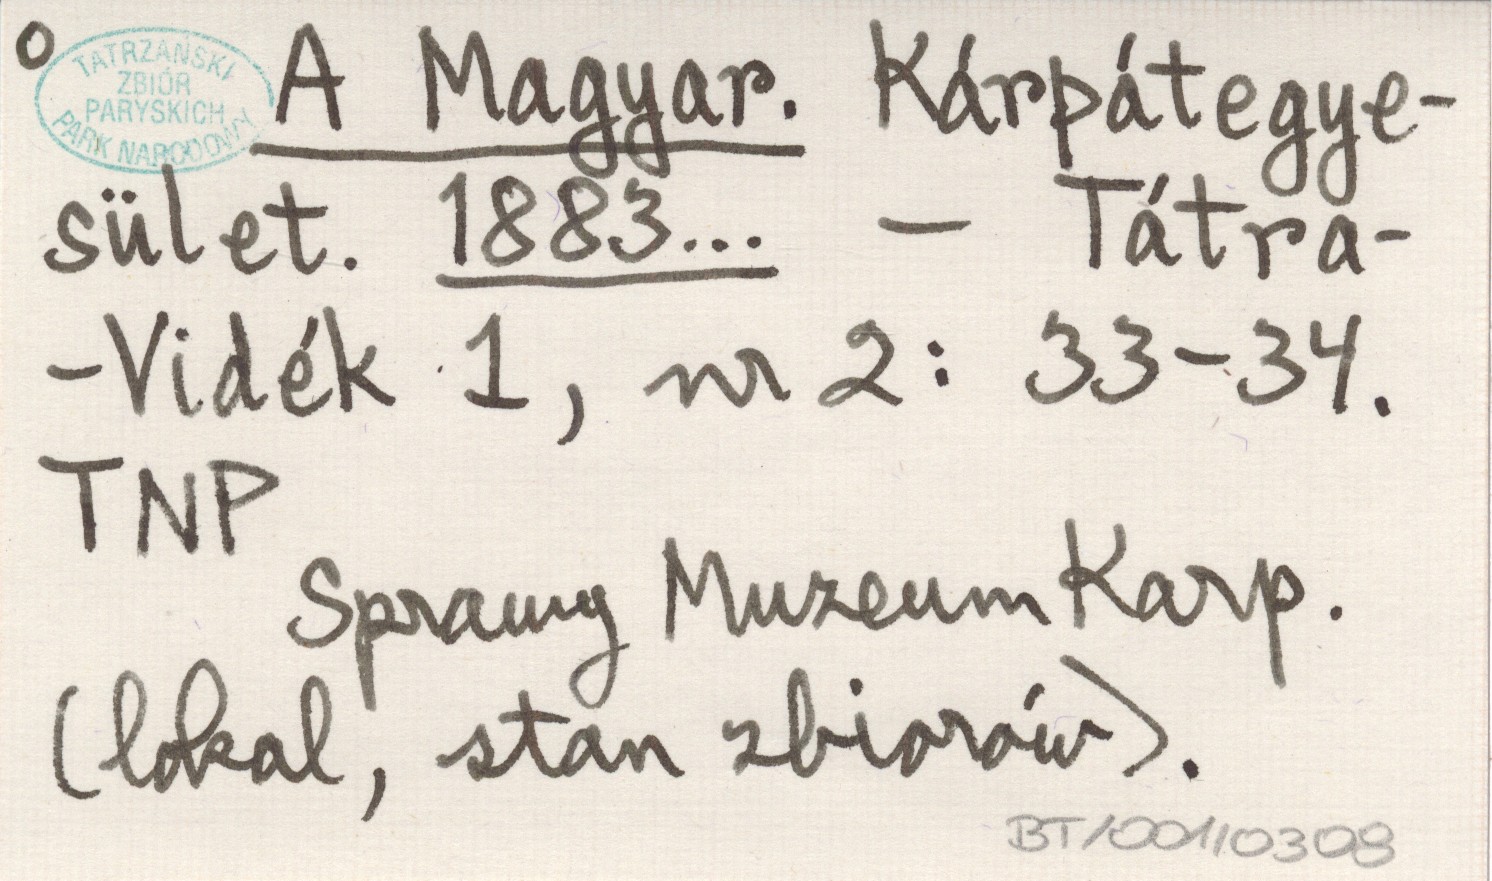 o
TATRZAŃSKI
ZBIÓR
PARYSKICH
PARK NARODOWY
A Magyar. Kárpátegye-
sület. 1883... – Tátra-
-Vidék 1, nr 2: 33-34.
TNP
Sprawy Muzeum Karp.
(lokal, stan zbiorów).
BT/001/0308